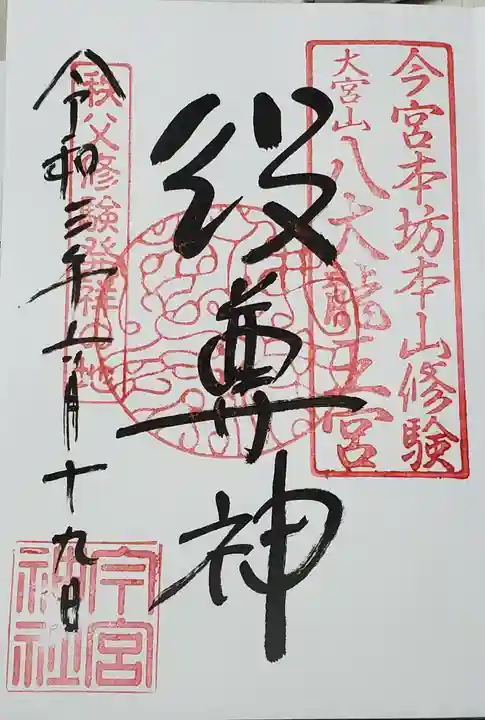 今宮本坊本山修験
大宮山八大龍王宮
役尊神
秩父修験発祥の地
令和三年六月十九日
今宮神社